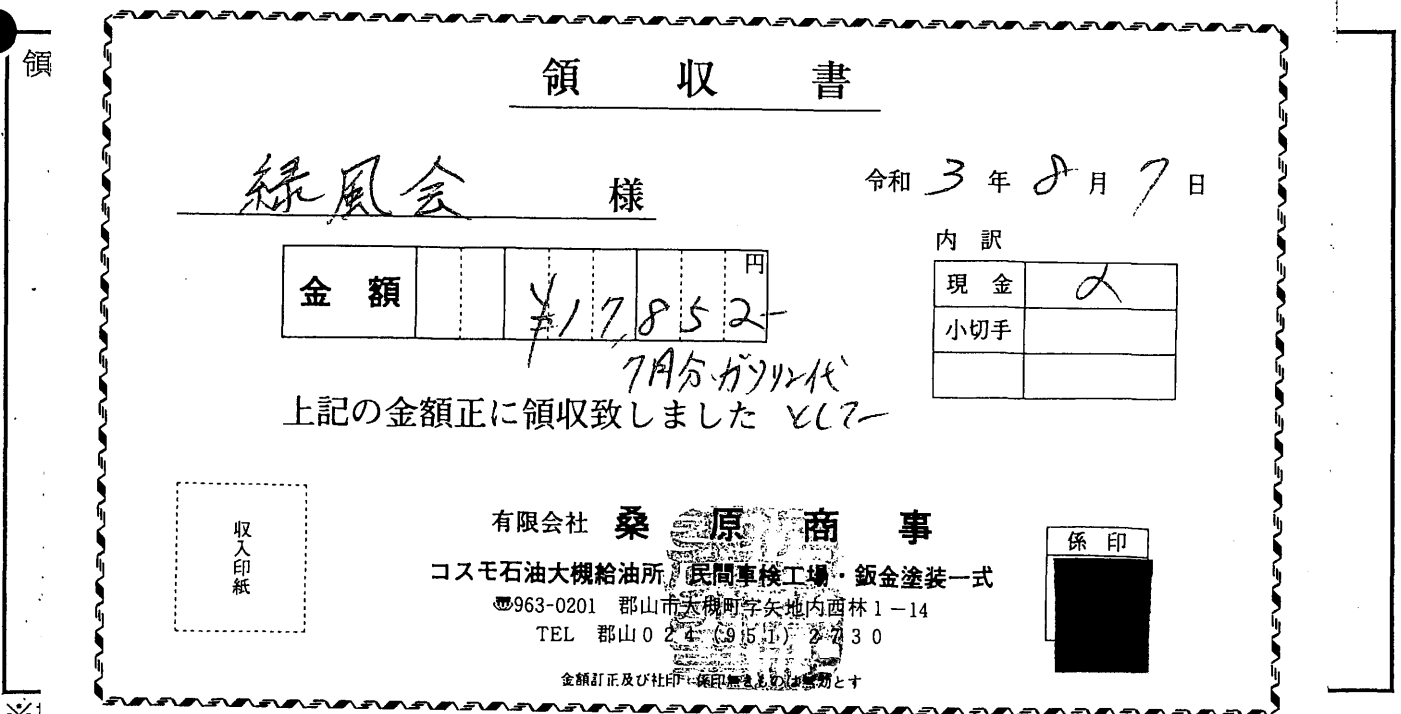 領
領収書
緑風会 様
令和 3 年 8 月 7 日
金額 ¥17,852- 円
内訳
現金
小切手
7月分ガソリン代
上記の金額正に領収致しました として
収入印紙
有限会社 桑原商事
コスモ石油大槻給油所 民間車検工場・鈑金塗装一式
〠963-0201 郡山市大槻町字矢地内西林1-14
TEL 郡山024(951)2730
係印
金額訂正及び社印・係印無きものは無効とす